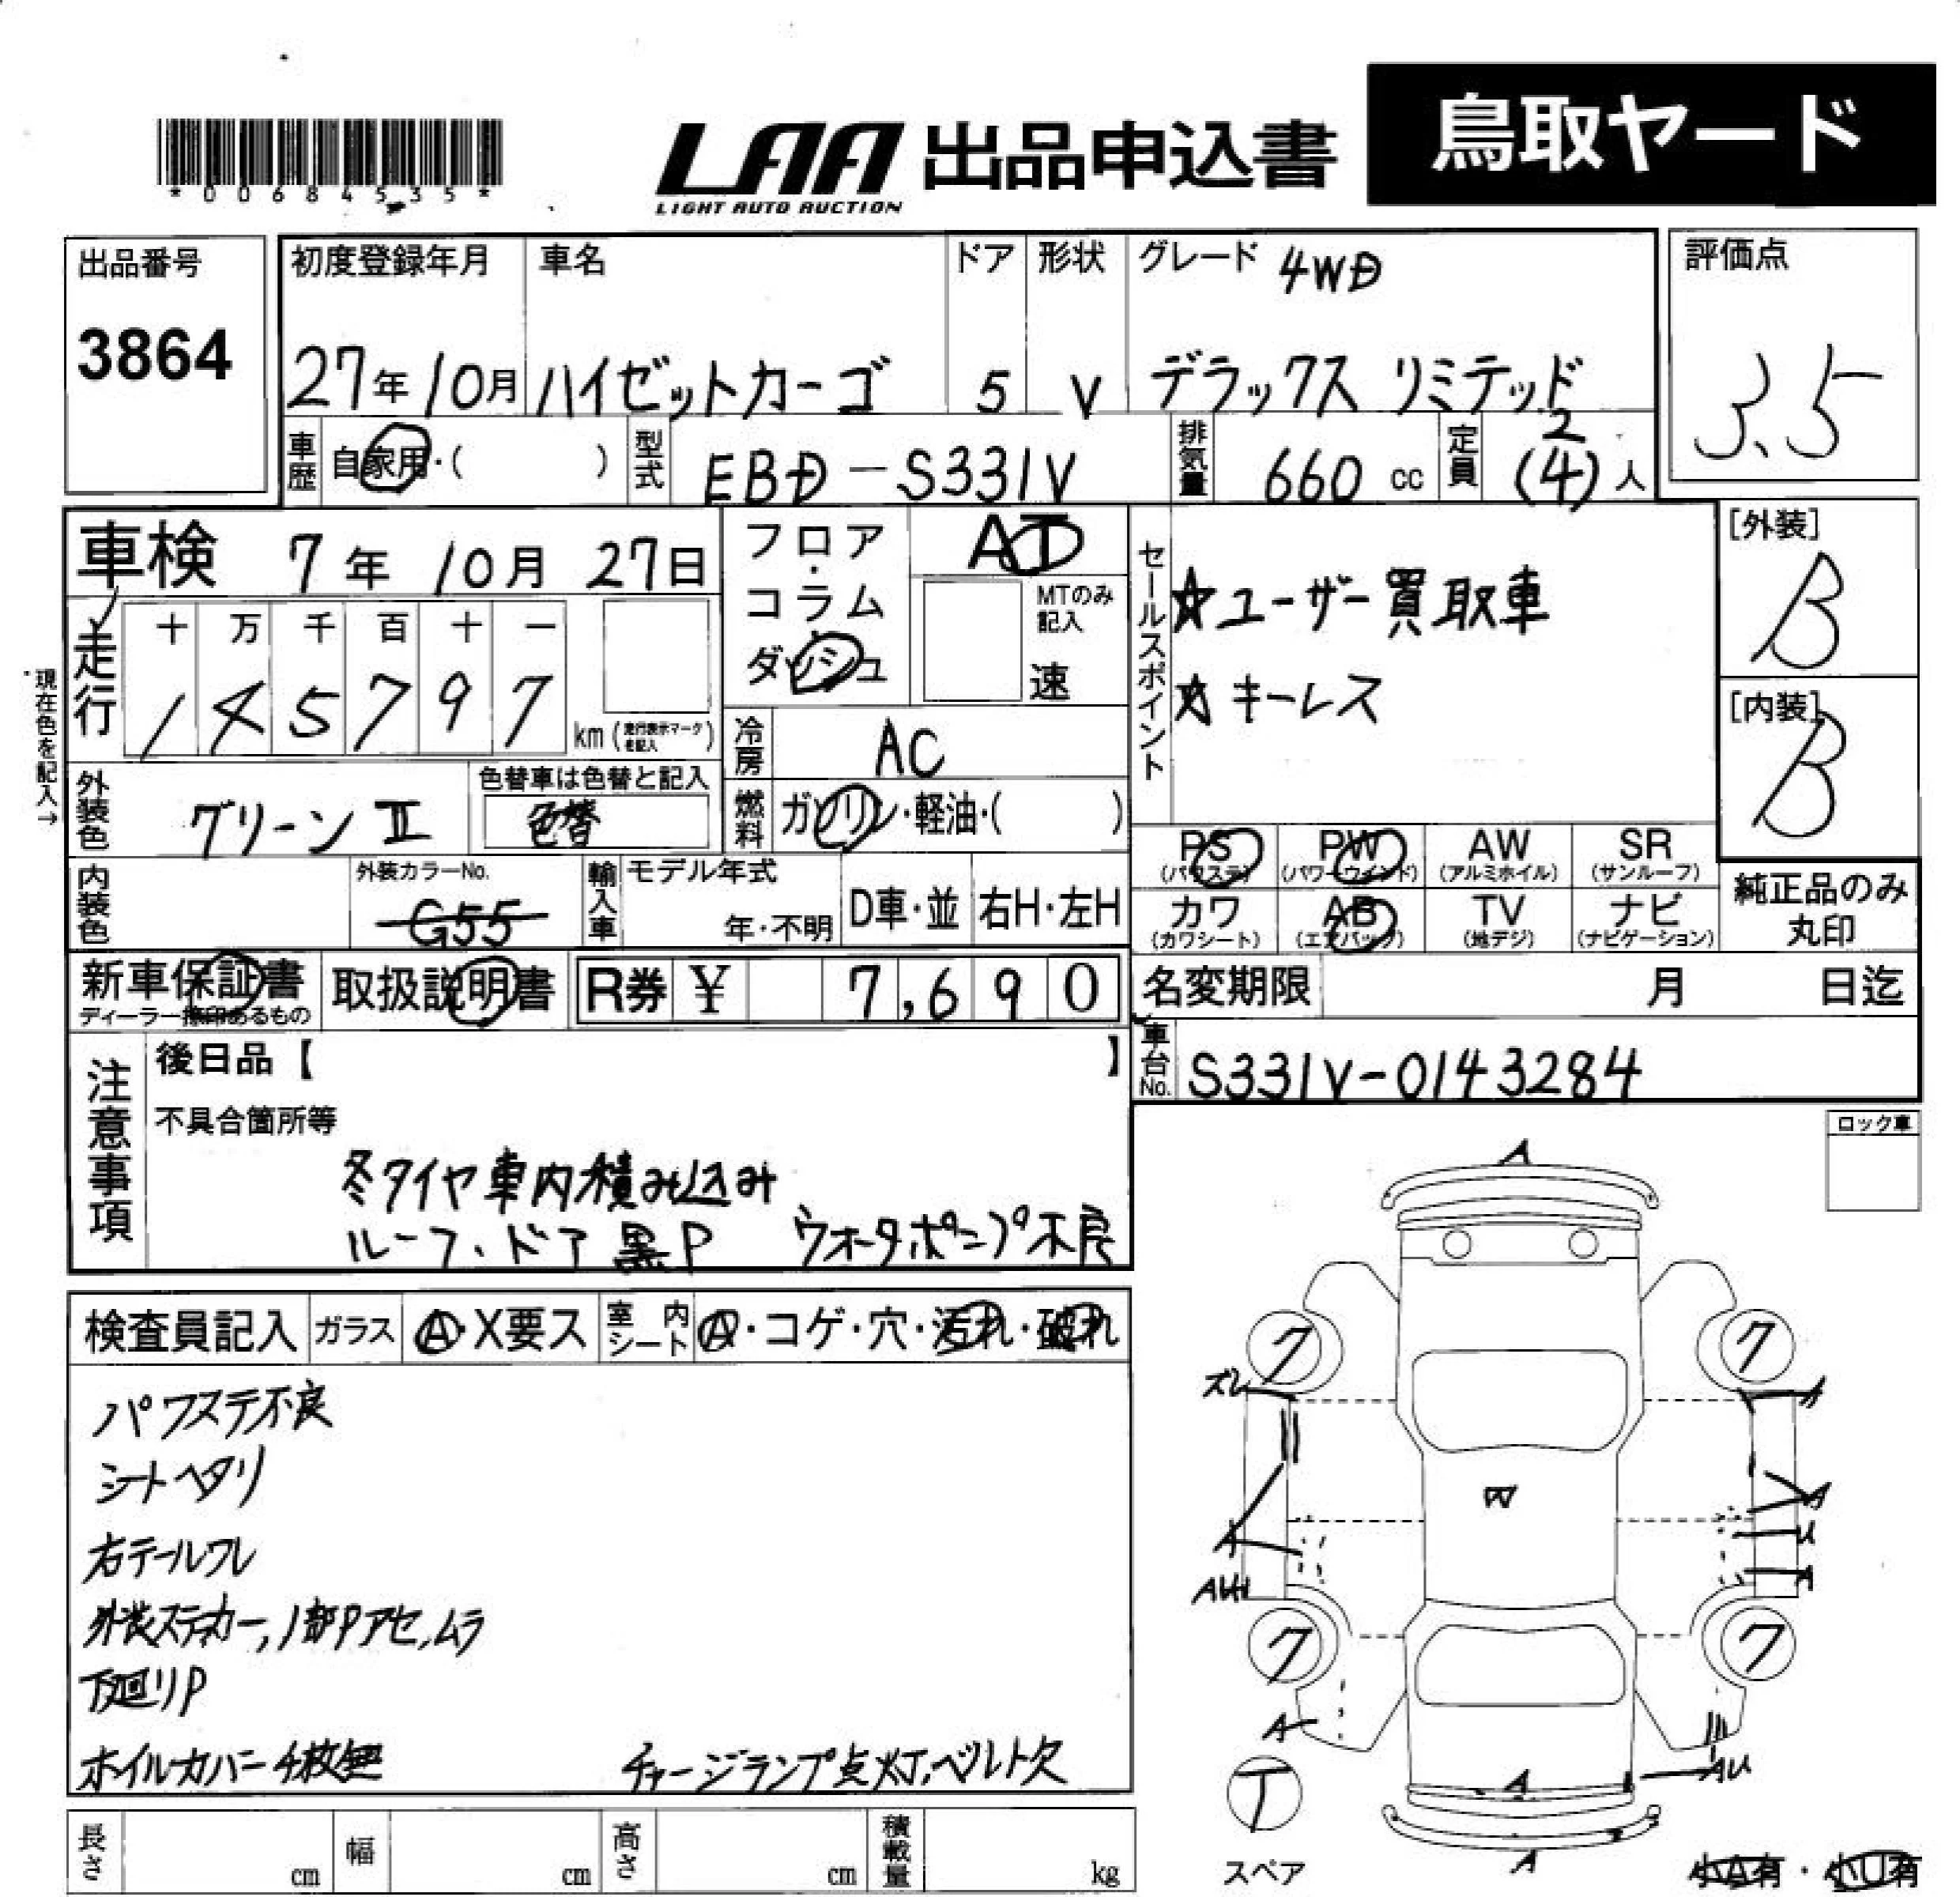 *00684535*
LAA 出品申込書 鳥取ヤード
LIGHT AUTO AUCTION
出品番号 3864
初度登録年月 27年10月
車名 ハイゼットカーゴ
ドア 5
形状 V
グレード 4WD デラックス リミテッド
評価点 3.5
車歴 自家用・( )
型式 EBD-S331V
排気量 660 cc
定員 2 (4) 人
車検 7年 10月 27日
現在色を記入→
走行 十 万 千 百 十 一
1 4 5 7 9 7 km (走行表示マークを記入)
フロア・コラム・ダッシュ
AT
MTのみ記入 速
冷房 AC
燃料 ガソリン・軽油・( )
セールスポイント
☆ユーザー買取車
☆キーレス
[外装] B
[内装] B
外装色 グリーンⅡ
色替車は色替と記入 色替
内装色
外装カラーNo. G55
輸入車 モデル年式 年・不明 D車・並 右H・左H
PS (パワステ) PW (パワーウインド) AW (アルミホイル) SR (サンルーフ)
カワ (カワシート) AB (エアバック) TV (地デジ) ナビ (ナビゲーション)
純正品のみ丸印
新車保証書 ディーラー捺印あるもの
取扱説明書
R券 ¥ 7,690
名変期限 月 日迄
車台No. S331V-0143284
注意事項
後日品【 】
不具合箇所等
冬タイヤ車内積み込み
ルーフ、ドア 黒P ウォータポンプ不良
ロック車
検査員記入 ガラス A・X要ス 室内シート A・コゲ・穴・汚れ・破れ
パワステ不良
シートヘタリ
右テールワレ
外装ステッカー,1部Pアセ,ムラ
下廻リP
ホイルカバー4枚無 チャージランプ点灯,ベルト欠
A
ク ク
ズレ A
W
A A
U
AU A
ク ク
A AU
A
T
スペア
A
小A有・小U有
長さ cm 幅 cm 高さ cm 積載量 kg